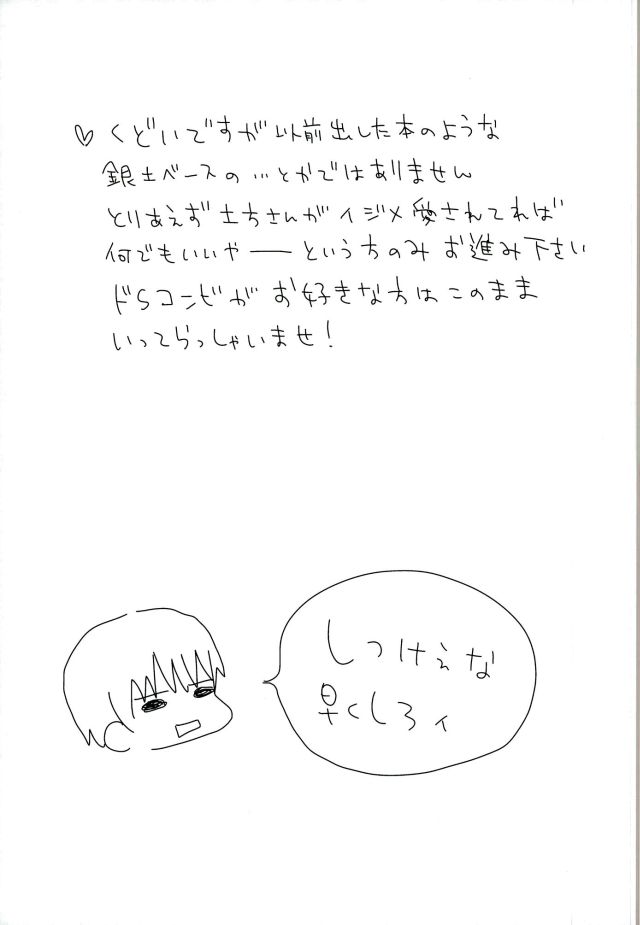 ♡くどいですが以前出した本のような
銀土ベースの…とかではありません
とりあえず土方さんがイジメ愛されてれば
何でもいいや——という方のみお進み下さい
ドSコンビがお好きな方はこのまま
いってらっしゃいませ!
しつけぇな
早くしろィ